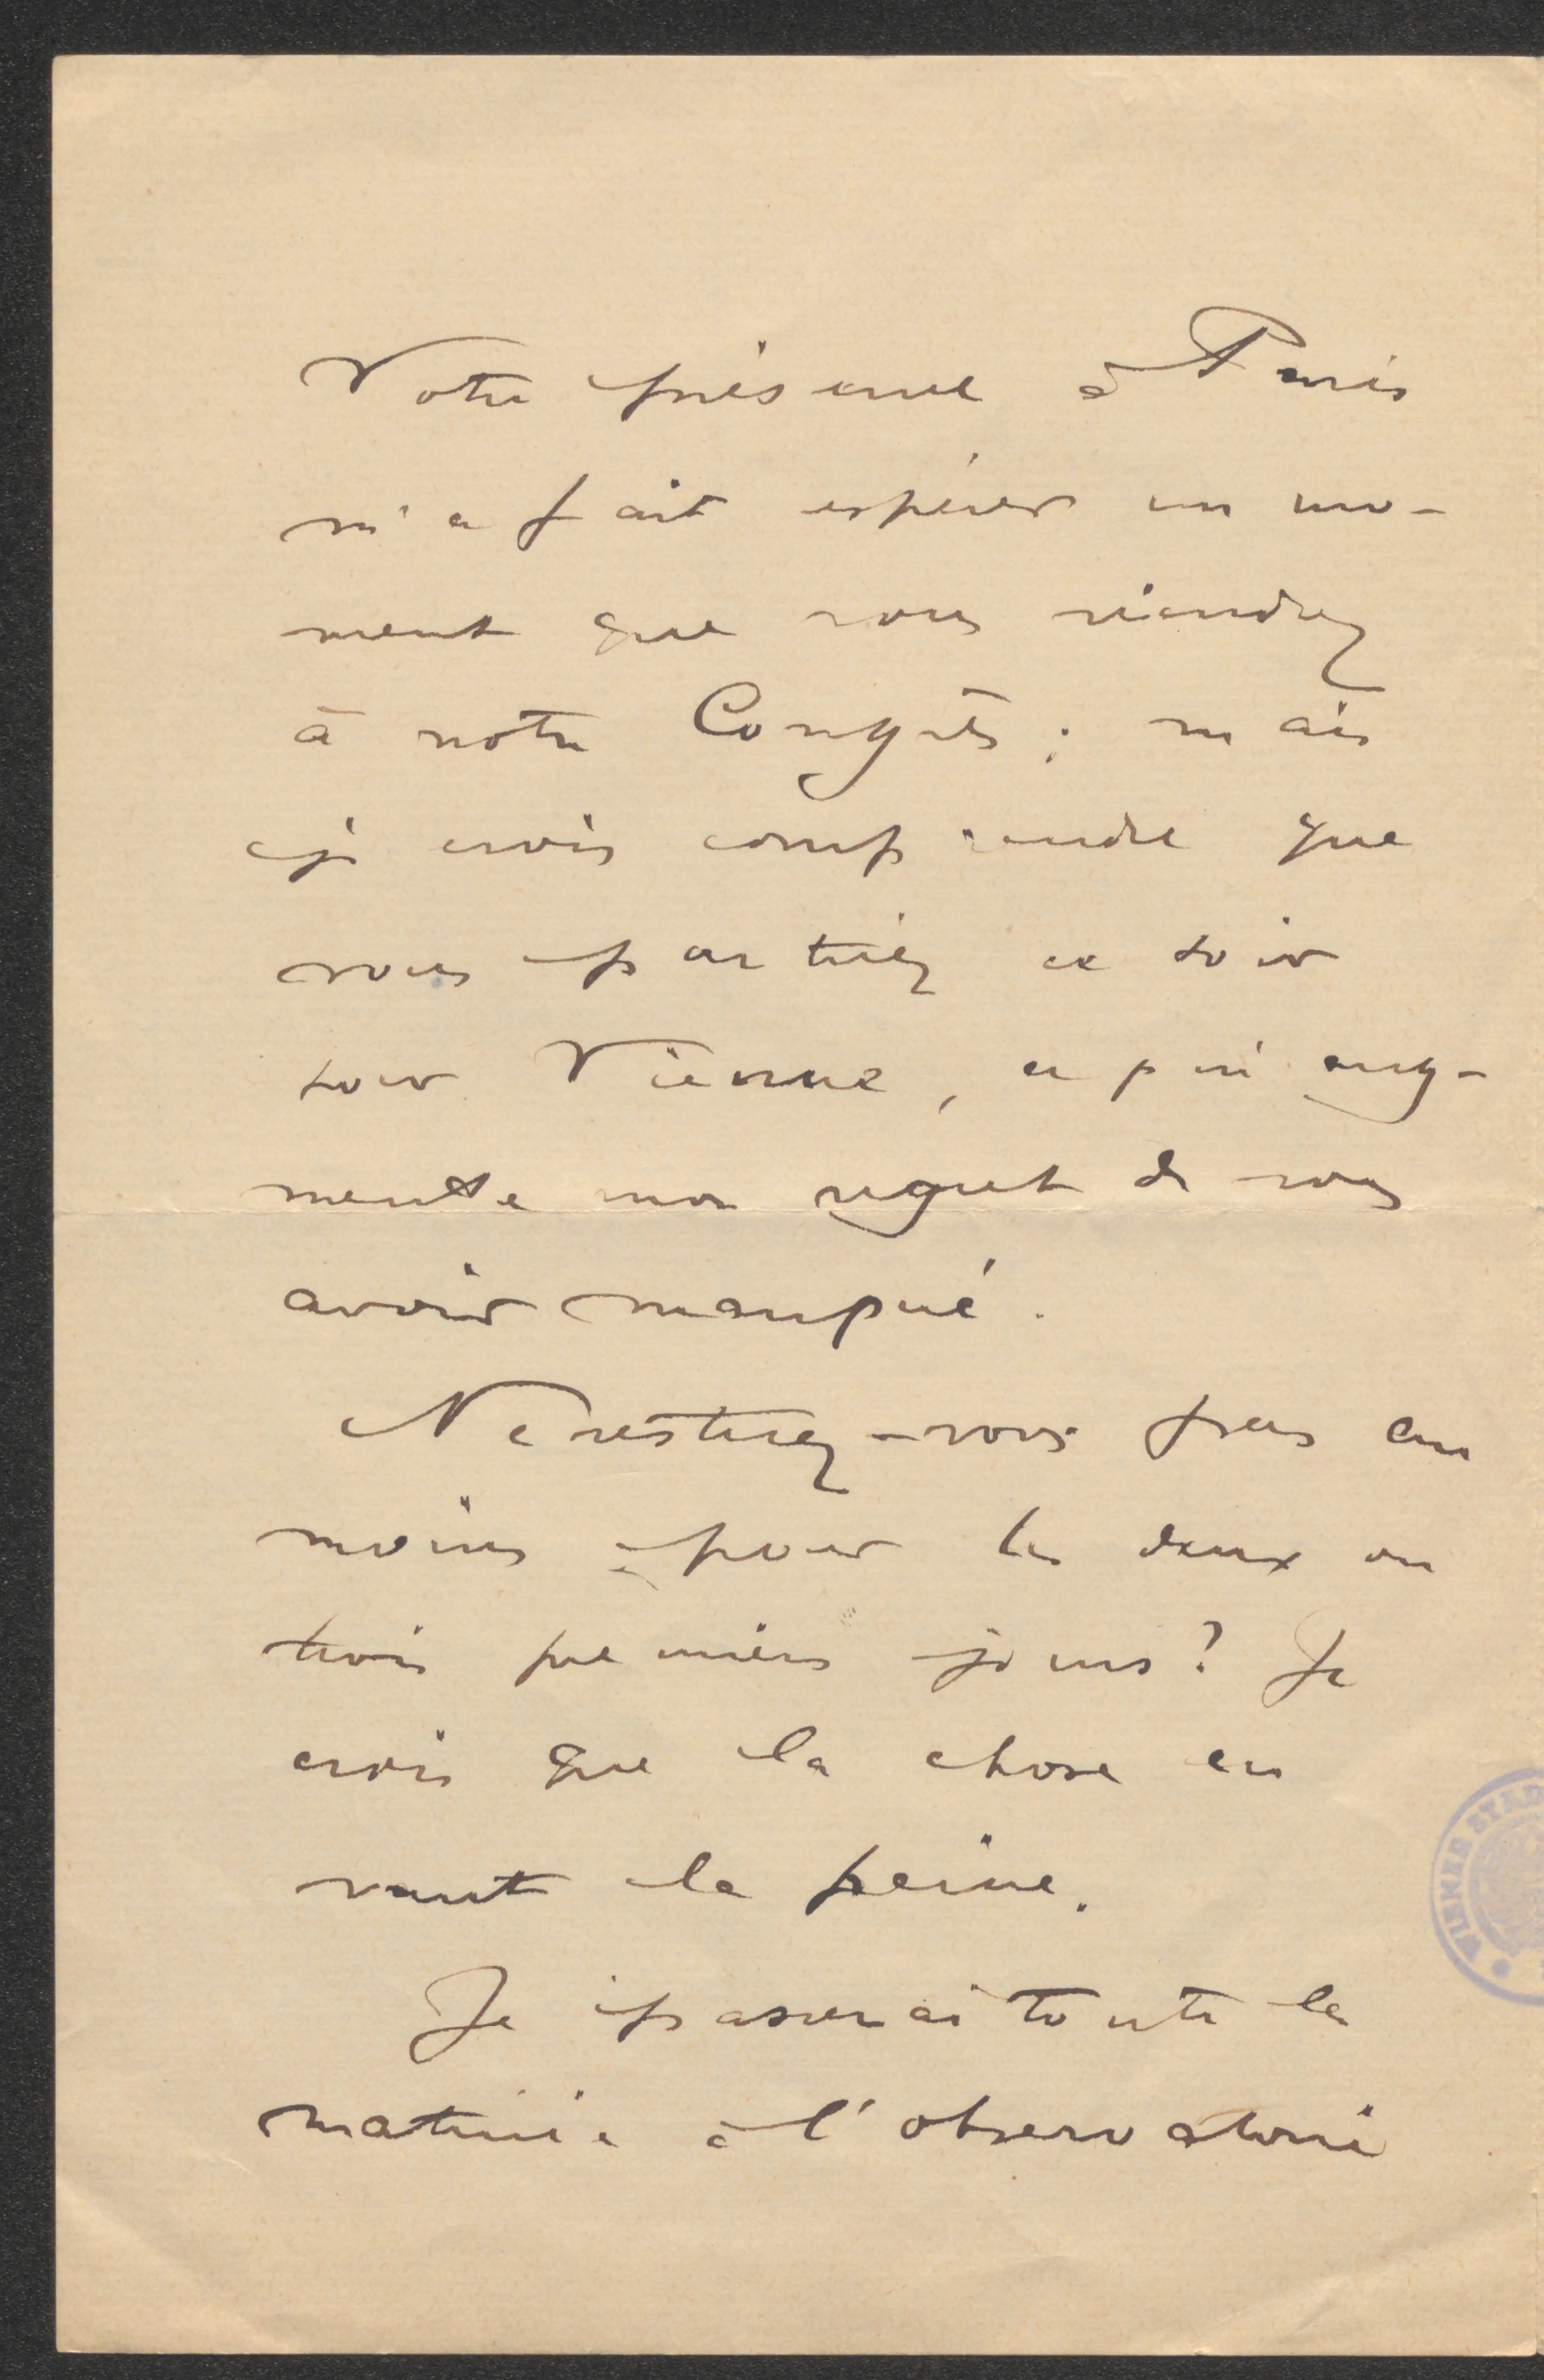 Votre présence à Paris
m'a fait espérer un mo-
ment que vous viendrez
à notre Congrès ; mais
je crois comprendre que
vous partiez ce soir
Vienne, ce qui aug-
mente mon regret de vous
avoir manqué.
Ne resterez-vous pas au
moins pour les deux ou
trois premiers jours ? Je
crois que la chose en
vaut la peine.
Je passerai toute la
matinée à l'observatoire
WIENER STÄD